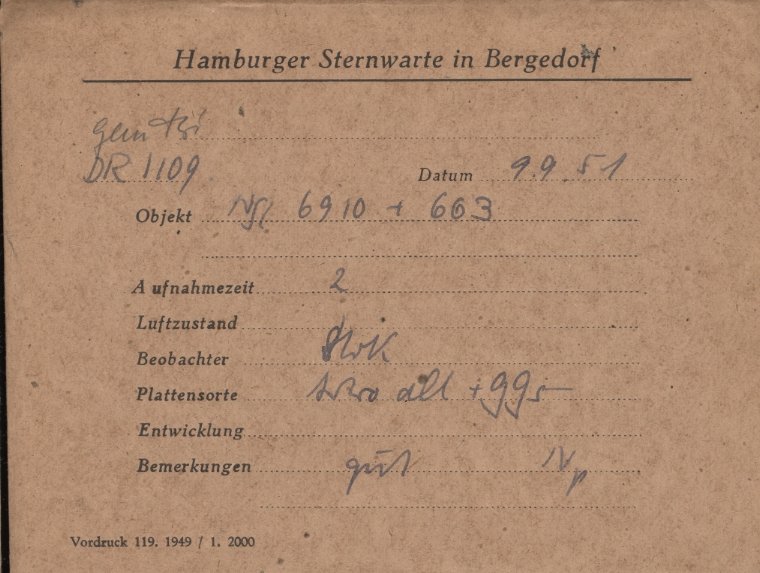 Hamburger Sternwarte in Bergedorf
DR 1109 Datum 9.9.51
Objekt 6910 + 663
Aufnahmezeit 2
Luftzustand
Beobachter
Plattensorte
Entwicklung
Bemerkungen gut
Vordruck 119. 1949 / 1. 2000